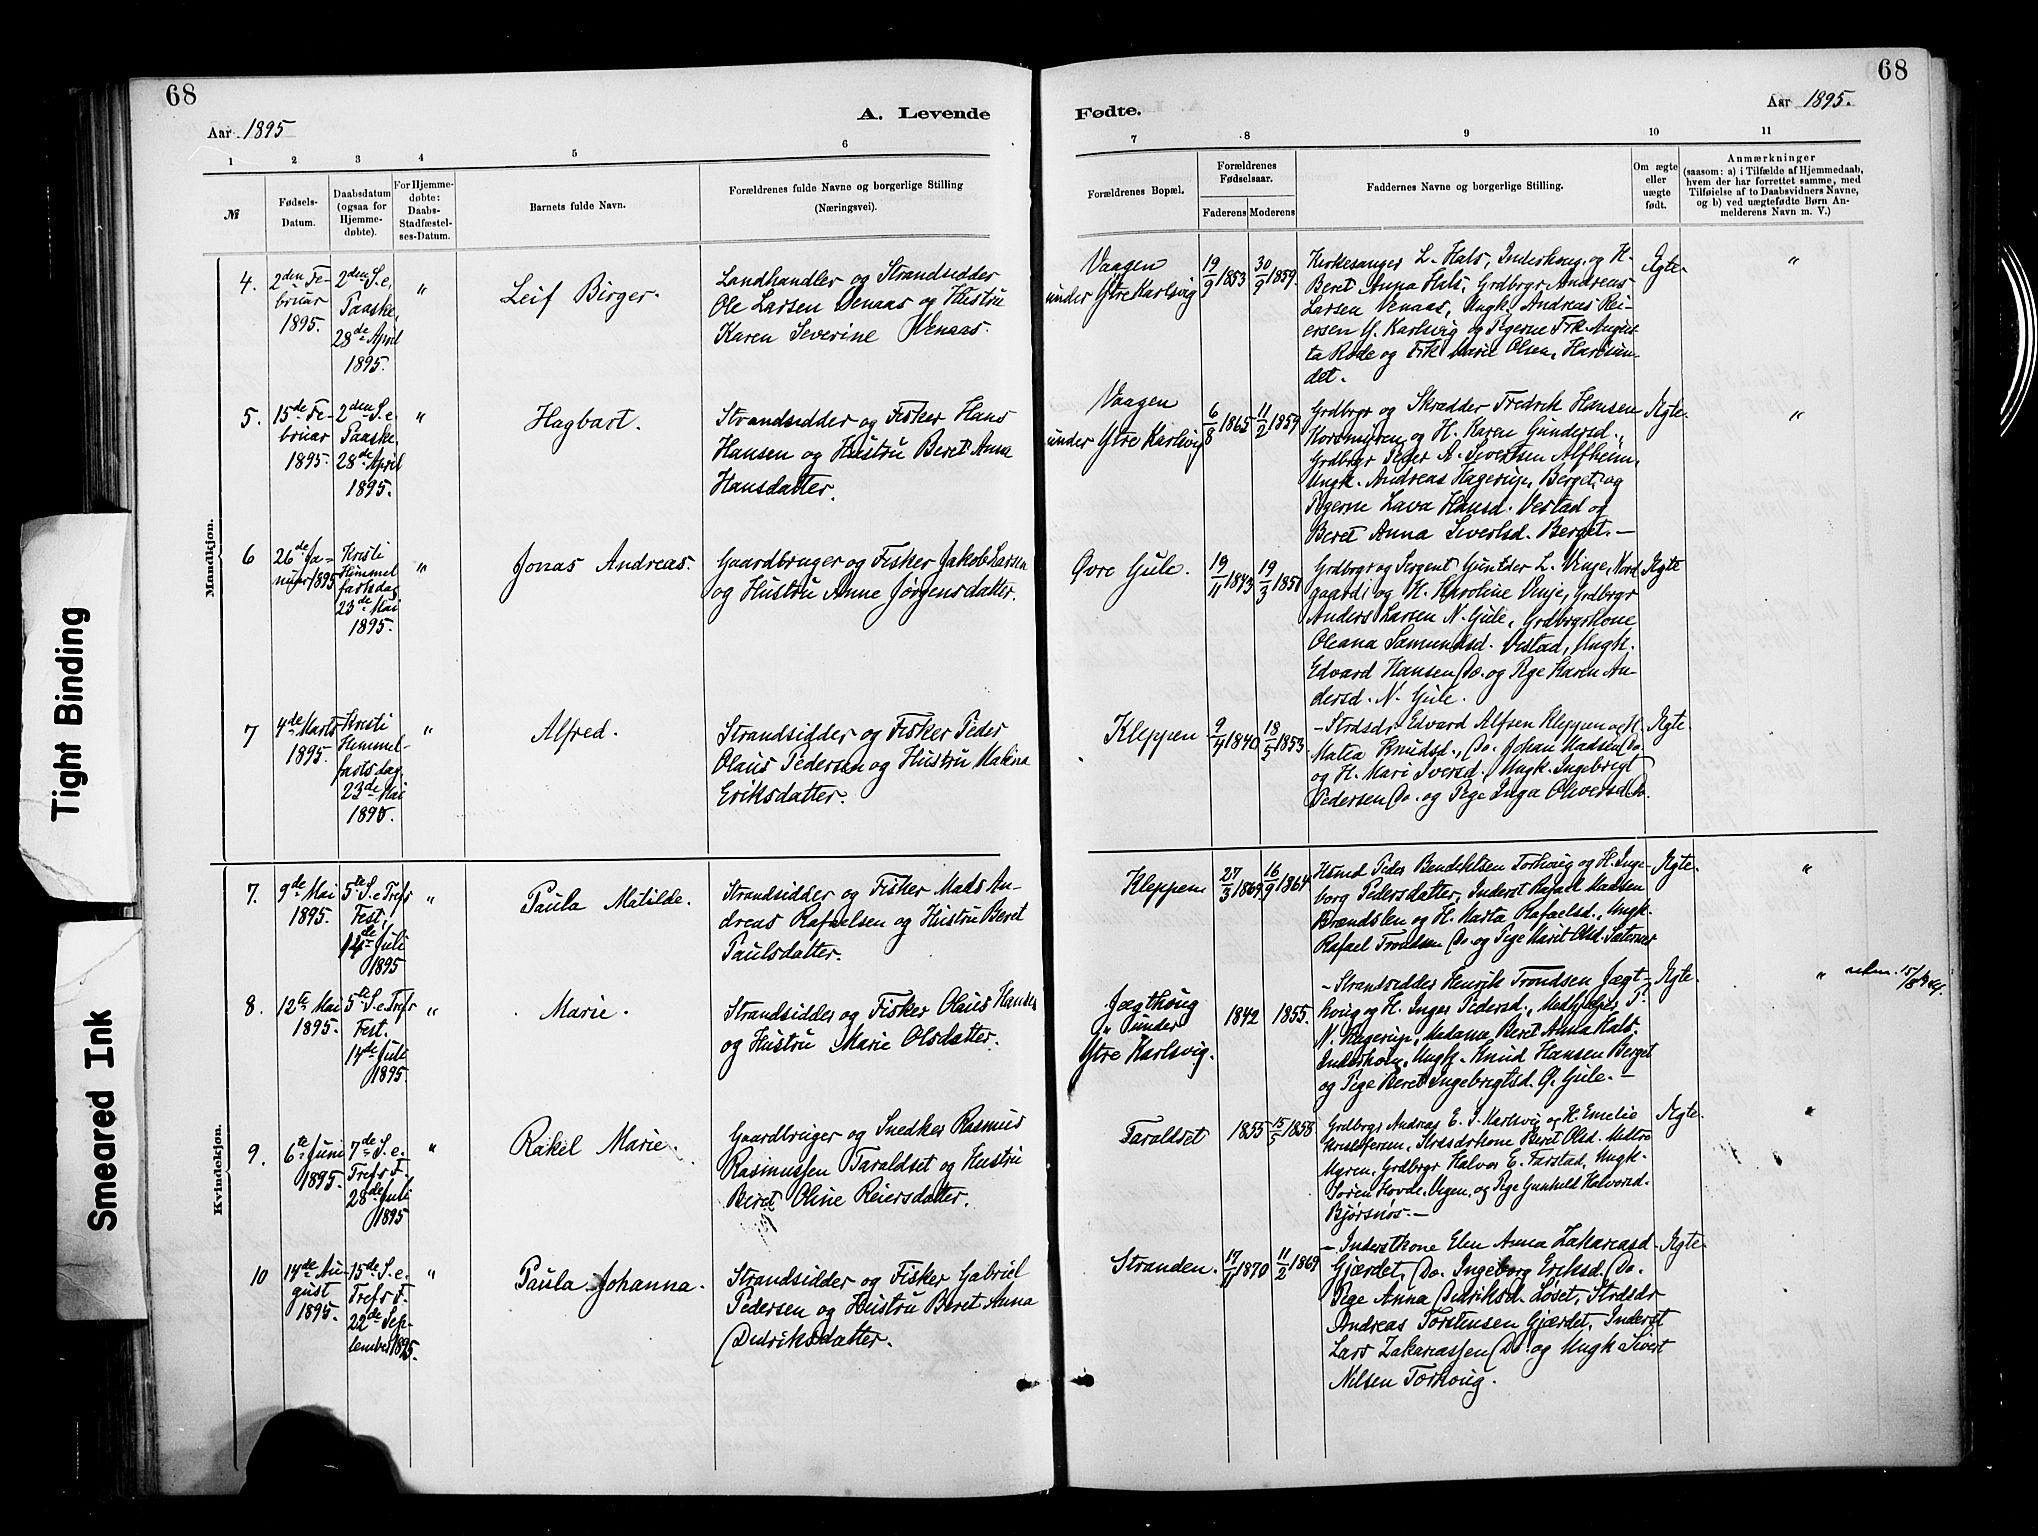 68
68
A. Levende
Fødte.
Aar 1895
Aar 1895.
1 2 3 4 5 6 7 8 9 10 11
№
Fødsels-
Datum.
Daabsdatum
(ogsaa for
Hjemme-
døbte).
For Hjemme-
døbte:
Daabs-
Stadfæstel-
ses-Datum.
Barnets fulde Navn.
Forældrenes fulde Navne og borgerlige Stilling
(Næringsvei).
Forældrenes Bopæl.
Forældrenes
Fødselsaar.
Faderens Moderens
Faddernes Navne og borgerlige Stilling.
Om ægte
eller
uægte
født.
Anmærkninger
(saasom: a) i Tilfælde af Hjemmedaab,
hvem der har forrettet samme, med
Tilføielse af to Daabsvidners Navne,
og b) ved uægtefødte Børn An-
melderens Navn m. V.)
Mandkjøn.
4.
2den Fe-
bruar
1895.
2den S. e.
Paaske,
28de April
1895.
"
Leif Birger.
Landhandler og Strandsidder
Ole Larsen Venaas og Hustru
Karen Severine Venaas.
Vaagen
under Ytre Karlsvig
19/9 1853
30/9 1859.
Kirkesanger L. Hals, Inderhoug, og H.
Beret Anna Hals, Grdbrgr Andreas
Larsen Venaas, Ungk. Andreas Rei-
ersen Y. Karlsvig og Pigerne Frk. Augus-
ta Rode og Frk Marie Olsen, Harøsun-
det.
Ægte
"
5.
15de Fe-
bruar
1895.
2den S. e.
Paaske,
28de April
1895.
"
Hagbart.
Strandsidder og Fisker Hans
Hansen og Hustru Beret Anna
Hansdatter.
Vaagen
under Ytre Karlsvig
6/8 1865
11/2 1859
Grdbrgr og Skrædder Fredrik Hansen
Korsmyren og H. Karen Gundersd.,
Grdbrgr Peder A. Sivertsen Alfheim,
Ungk. Andreas Hagerup, Berget, og
Pigerne Lava Hansd. Vestad og
Beret Anna Sivertsd. Berget.—
Ægte
"
6
26de Ja-
nuar 1895
Kristi
Himmel
fartsdag
23de Mai
1895.
"
Jonas Andreas.
Gaardbruger og Fisker Jakob Larsen
og Hustru Anne Jørgensdatter.
Øvre Gule.
19/11 1843
19/3 1851
Grdbrgr og Sergent Gunder L. Vinje, Nord
gaardi og H. Karoline Vinje, Grdbrgr
Anders Larsen N. Gule, Grdbrgrkone
Oleana Samundsd. Vestad, Ungk.
Edvard Hansen Do. og Pige Karen An-
dersd. N. Gule.
Ægte
7
4de Marts
1895.
Kristi
Himmel-
fartsdag
23de Mai
1895.
"
Alfred.
Strandsidder og Fisker Peder
Olaus Pedersen og Hustru Malena
Eriksdatter.
Kleppen
9/4 1840
18/5 1853
— Strdsdr. Edvard Alfsen Kleppen og H.
Matea Knudsd., Do. Johan Madsen Do.
og H. Mari Iversd. Ungk. Ingebrigt
Pedersen Do. og Pige Inga Oliversd. Do.
Ægte
Kvindekjøn.
7.
9de Mai
1895.
5te S. e Trefs
Fest,
14de Juli
1895
"
Paula Matilde.
Strandsidder og Fisker Mads An-
dreas Rafaelsen og Hustru Beret
Paulsdatter.
Kleppen
27/3 1869
16/9 1864
Hsmd Peder Bendiktsen Torhoug og H. Inge-
borg Pedersdatter, Inderst Rafael Madsen
Brændslen og H. Marta Rafaelsd., Ungk.
Rafael Trondsen Do. og Pige Marit Olsd. Sæternes
Ægte
"
8.
12te Mai
1895.
5te S. e. Trefs
Fest.
14de Juli
1895
"
Marie.
Strandsidder og Fisker Olaus Hansen
og Hustru Marie Olsdatter.
Jægthoug
" under
Ytre Karlsvig.
1842
1855.
— Strandsidder Henrik Trondsen Jægt-
houg og H. Inger Pedersd., Medhjelper P.
N. Hagerup, Madame Beret Anna Hals,
Inderhoug, Ungk. Knud Hansen Berget
og Pige Beret Ingebrigtsd. Ø. Gule.—
Ægte
"
9.
6te Juni
1895.
7de S. e.
Trefs F.
28de Juli
1895
"
Rakel Marie.
Gaardbruger og Snedker Rasmus
Rasmussen Taraldset og Hustru
Beret Oline Reiersdatter.
Taraldset
1855
15/5 1858
Grdbrgr Andreas E. S. Karlsvig og H. Emelie
Kristofersen, Strdsdrkone Beret Olsd. Mittre
Myren, Grdbrgr Halvor E. Farstad, Ungk.
Søren Hovde, Vegen, og Pige Gunhild Halvorsd.
Bjørsnøs.—
Ægte
"
10
14de Au-
gust
1895.
15de S. e.
Trefs F.
22de Sep-
tember 1895.
"
Paula Johanna.
Strandsidder og Fisker Gabriel
Pedersen og Hustru Beret Anna
Didriksdatter.
Stranden.
17/11 1870
11/2 1869
— Inderstkone Elen Anna Zakariasd
Gjærdet, Do. Ingeborg Eriksd. Do.
Pige Anna Didriksd. Løset, Strdsdr
Andreas Torstensen Gjærdet, Inderst
Lars Zakariassen Do. og Ungk Sivert
Nilsen Torhoug.
Ægte
Tight Binding
Smeared Ink